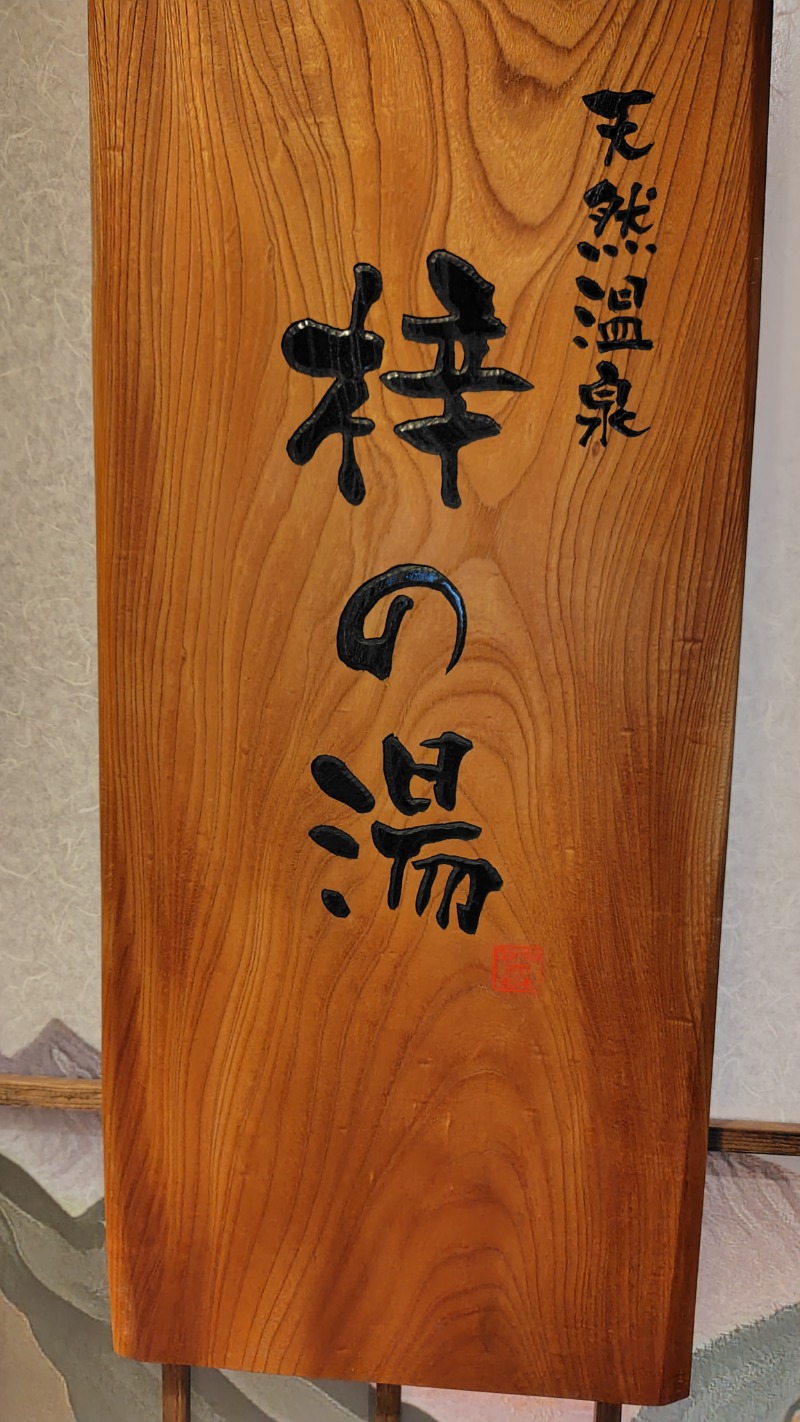 天然温泉
梓の湯